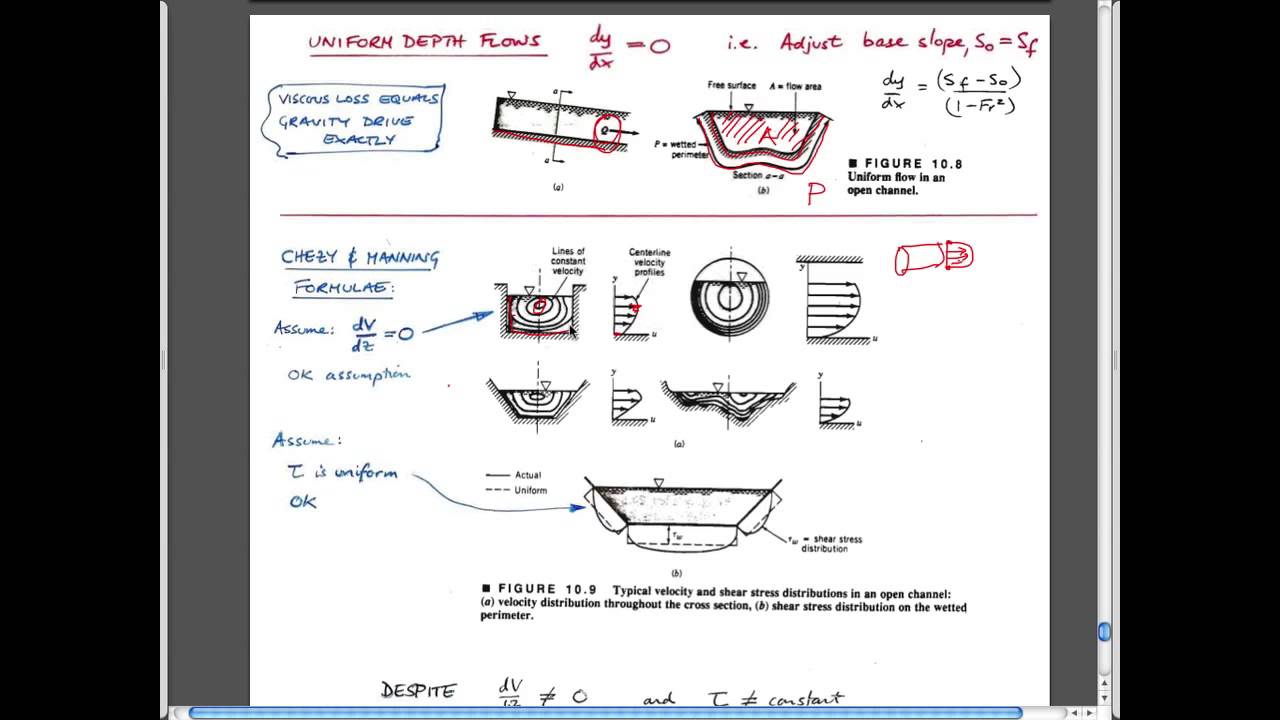 UNIFORM DEPTH FLOWS dy/dx = 0 i.e. Adjust base slope, So = Sf
dy/dx = (Sf - So) / (1 - Fr²)
VISCOUS LOSS EQUALS
GRAVITY DRIVE
EXACTLY
a
Q
a
(a)
Free surface
A = flow area
A
P = wetted
perimeter
Section a–a
(b)
P
■ FIGURE 10.8
Uniform flow in an
open channel.
CHEZY & MANNING
FORMULAE:
Assume: dV/dz = 0
OK assumption
Lines of
constant
velocity
Centerline
velocity
profiles
y
u
y
u
y
u
y
u
(a)
Assume:
τ is uniform
OK
Actual
Uniform
τw
τw = shear stress
distribution
(b)
■ FIGURE 10.9 Typical velocity and shear stress distributions in an open channel:
(a) velocity distribution throughout the cross section, (b) shear stress distribution on the wetted
perimeter.
DESPITE dV ≠ 0 and τ ≠ constant